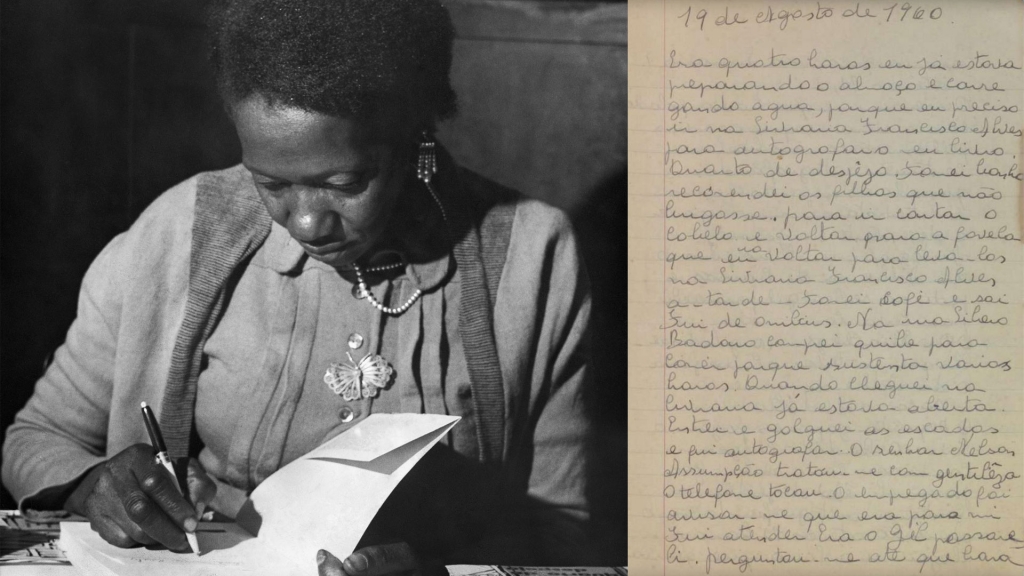 19 de Agosto de 1960.
Era quatro horas eu já estava
preparando o almoço e carre
gando agua, porque eu preciso
ir na Livraria Francisco Alves
para autografar o eu livro.
Quanto de desjejo.
recomendei os filhos que não
brigasse. para ir cortar o
cabelo e voltar para a favela
que eu vou voltar para leva-los
na Livraria Francisco Alves
a tarde. Tomei café e sai
Fui de onibus. Na rua Libero
Badaro comprei quibe para
comer porque sustenta varias
horas. Quando cheguei na
livraria já estava aberta.
Entrei e galguei as escadas
e fui autografar. O senhor Nelson
Assumpção tratou-me com gentilêza
O telefone tocou. O empregado foi
avisar-me que era para mi
Fui atender. Era o Gil passare-
li. perguntou-me até que hora